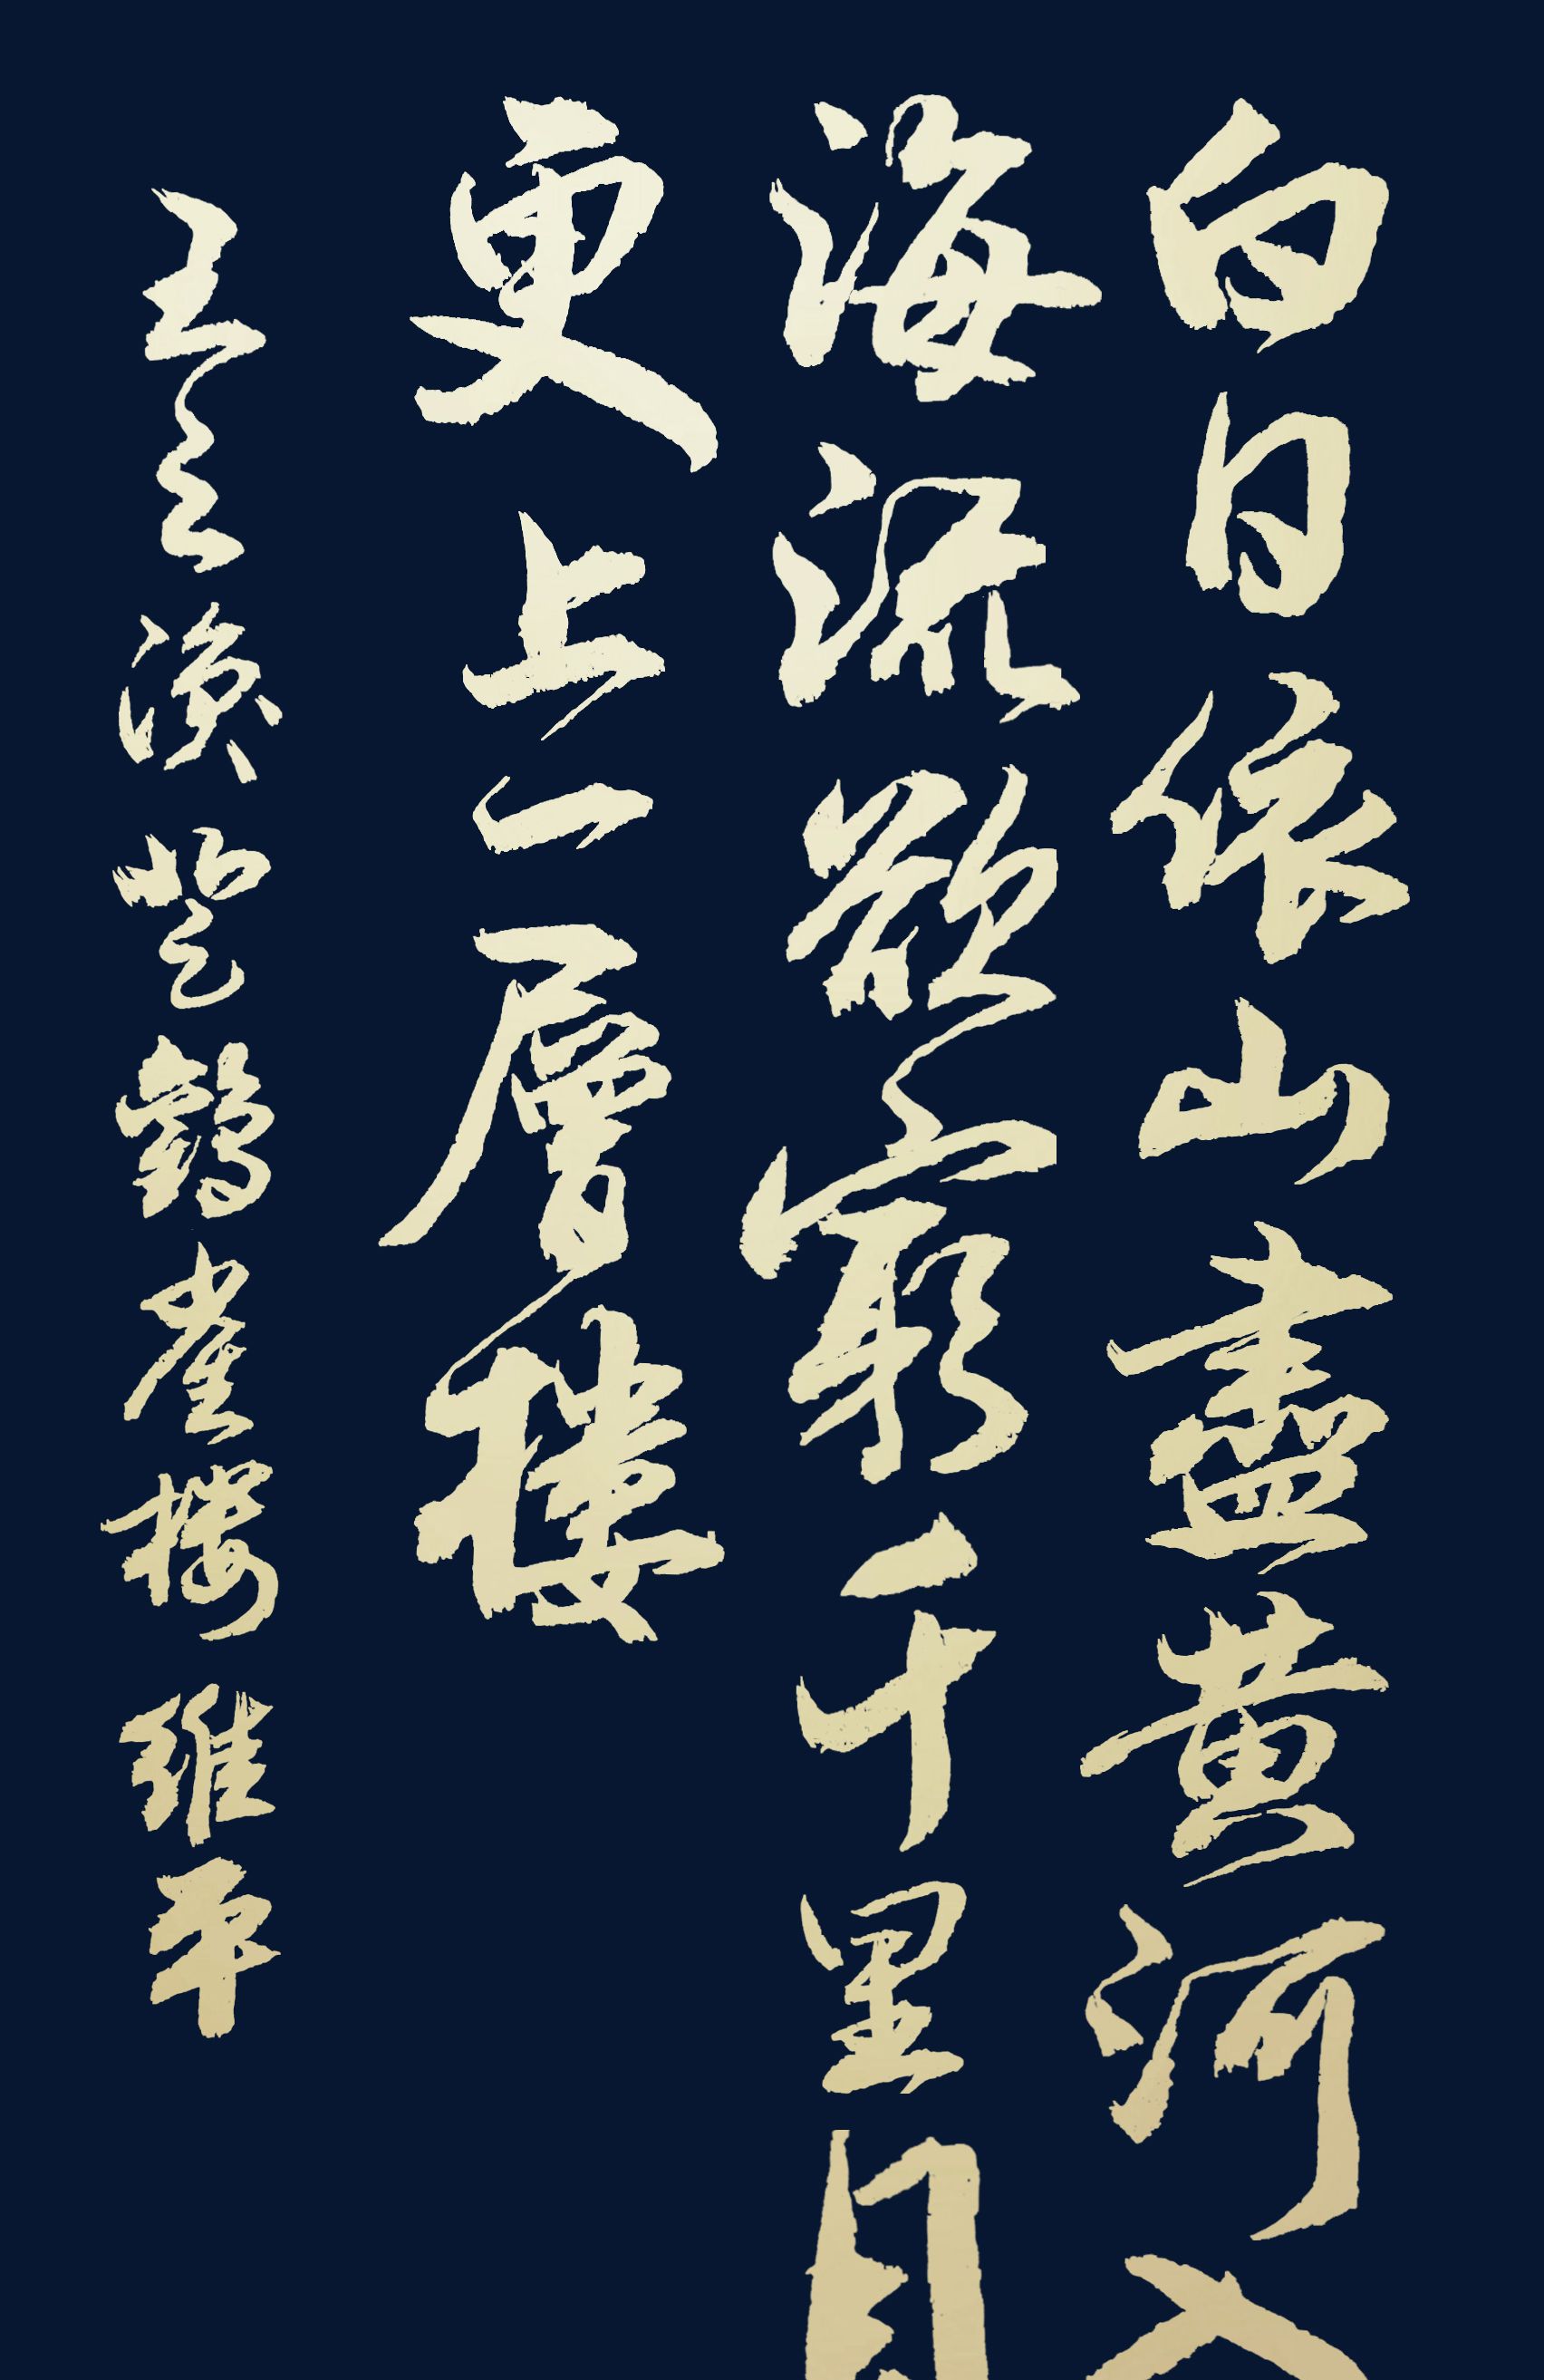 白日依山盡黄河入
海流欲窮千里目
更上一層樓
王之渙登鸛雀樓 維平